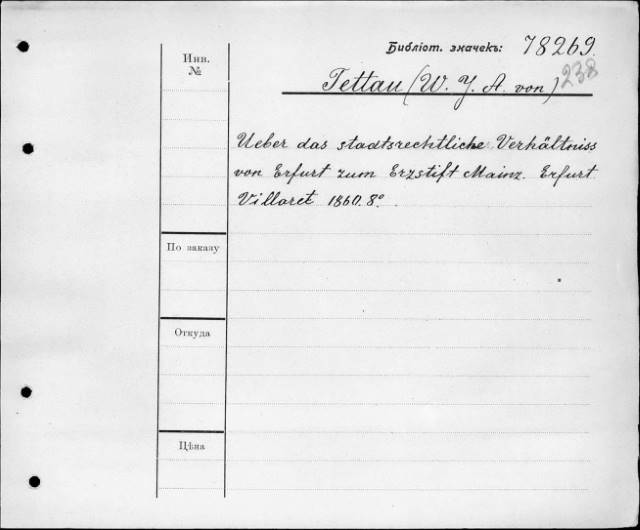 Библіот. значекъ: 78269
238
Инв.
№
Tettau (W. J. A. von)
Ueber das stadtsrechtliche Verhältniss
von Erfurt zum Erzstift Mainz. Erfurt
Villaret 1860. 8°.
По заказу
Откуда
Цѣна